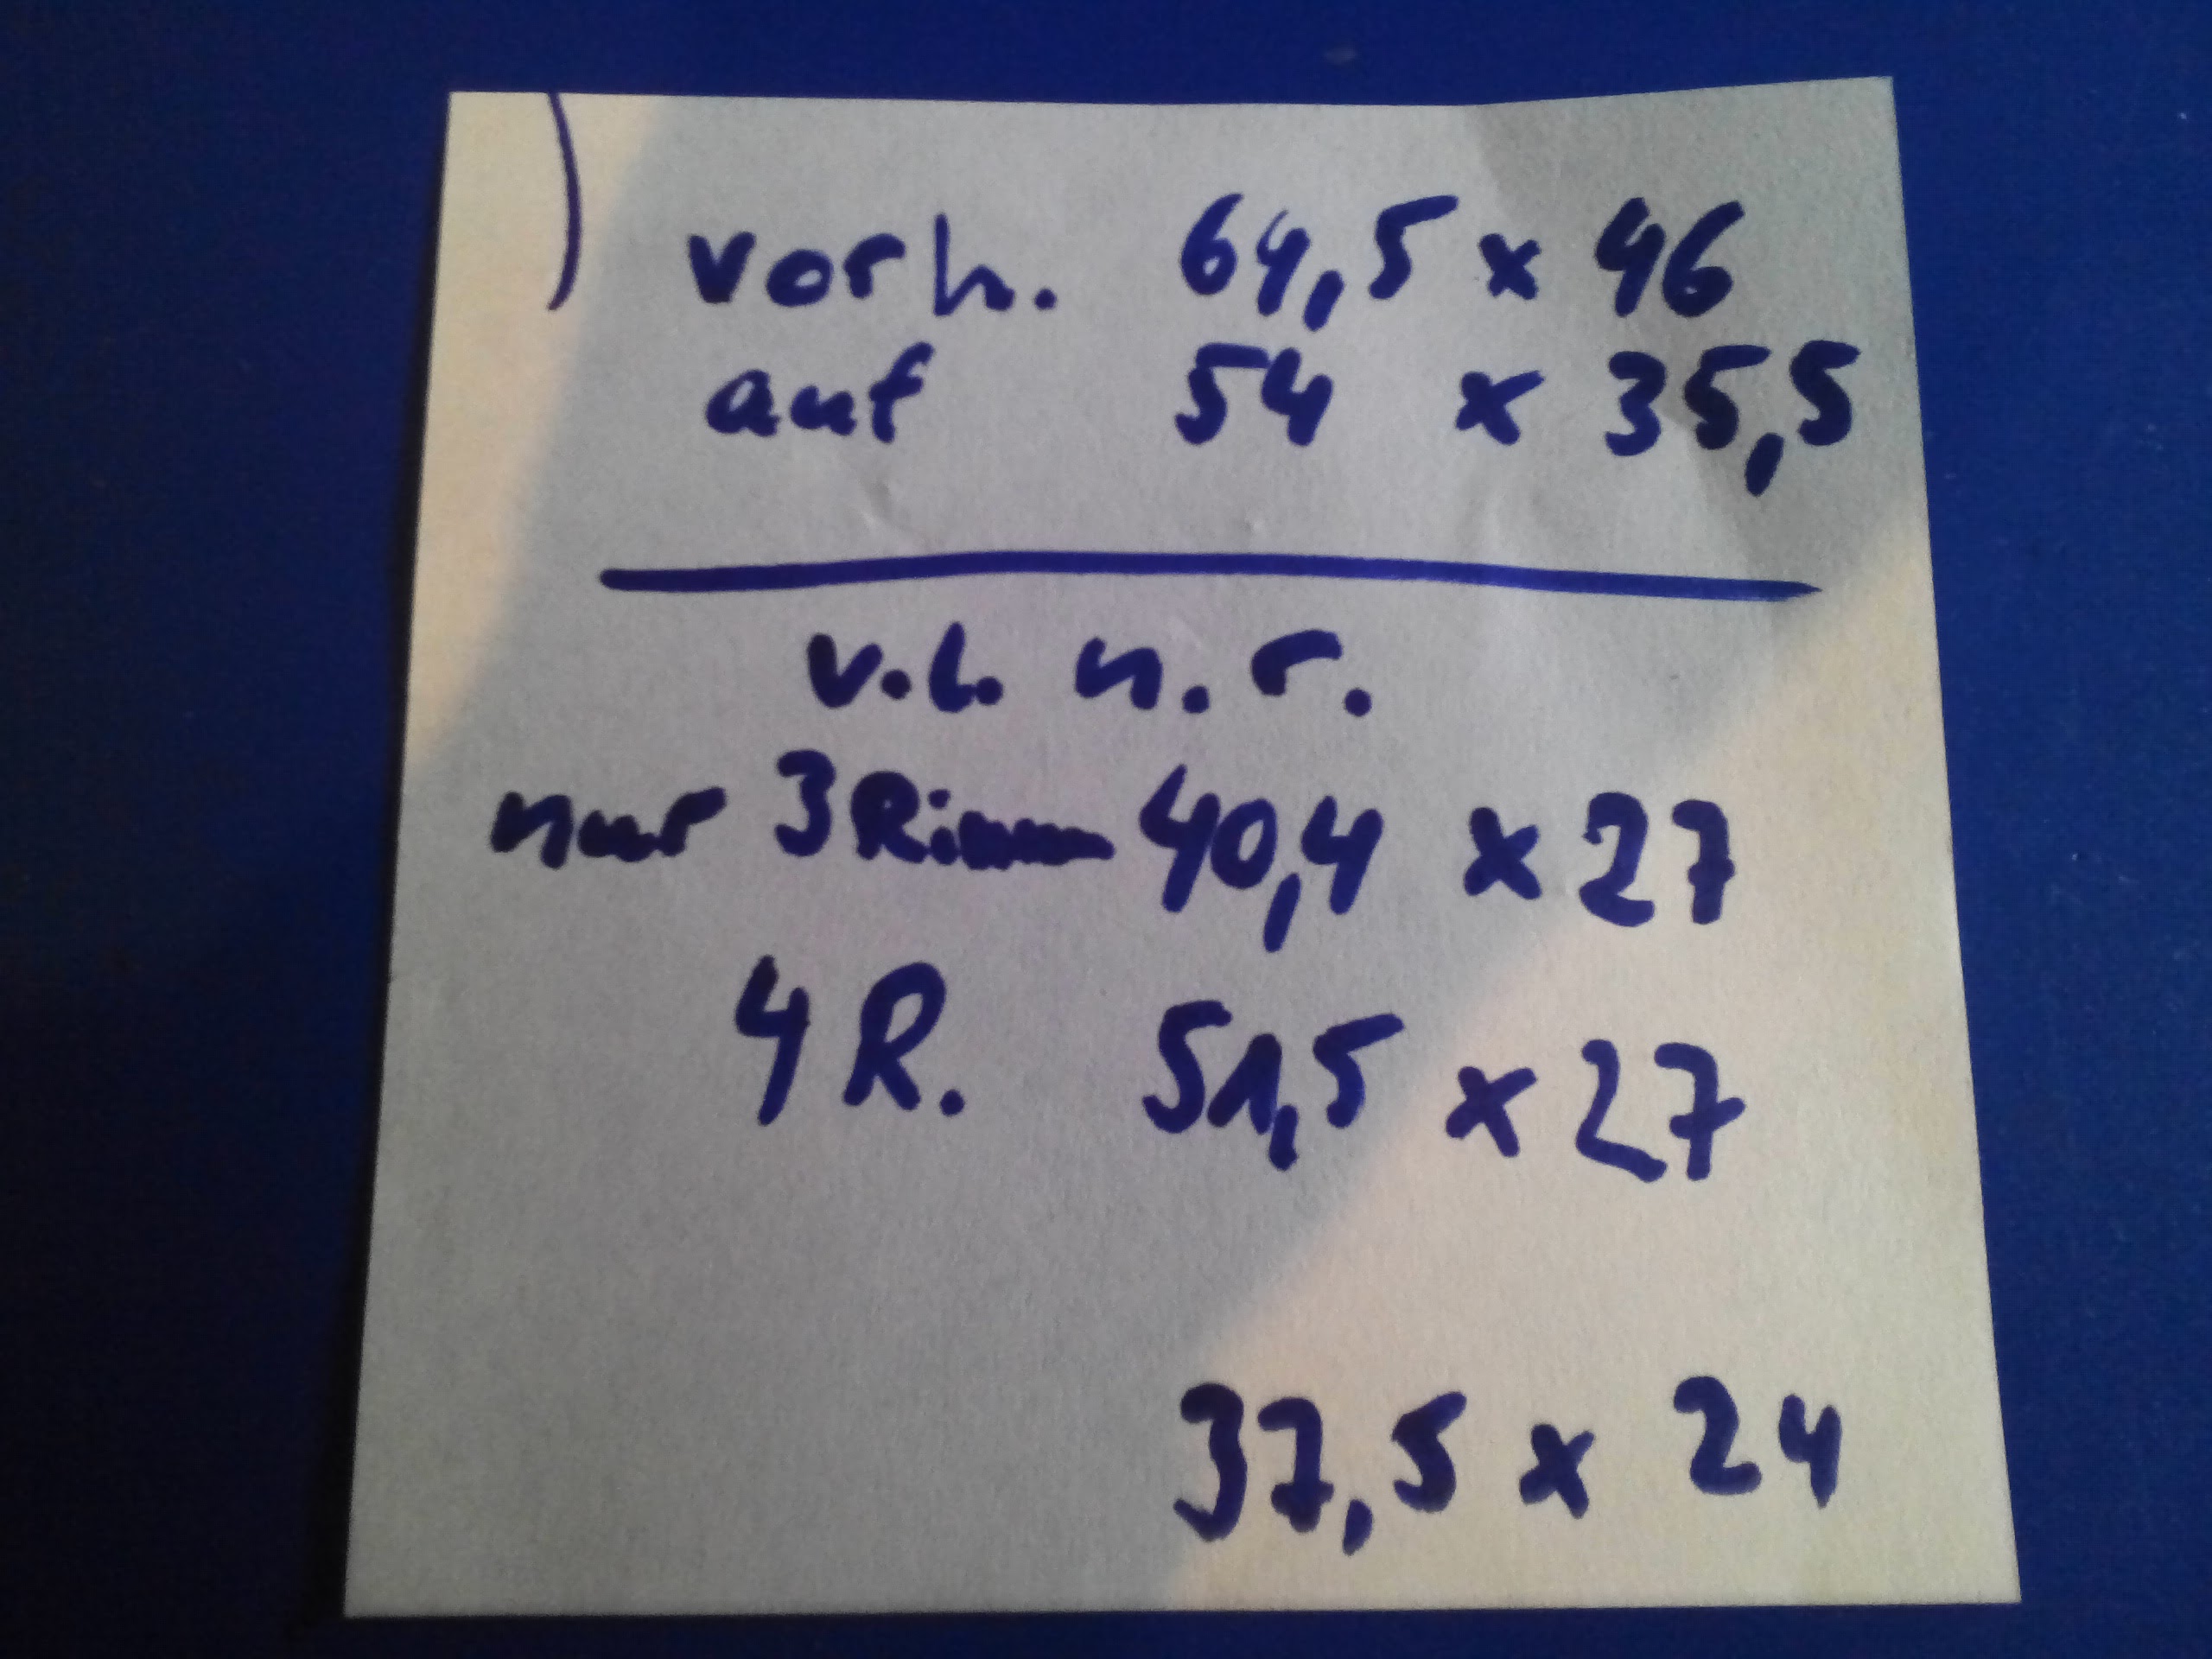 vorh. 64,5 x 46
auf 54 x 35,5
v.l. n.r.
nur 3 40,4 x 27
4 R. 51,5 x 27
37,5 x 24